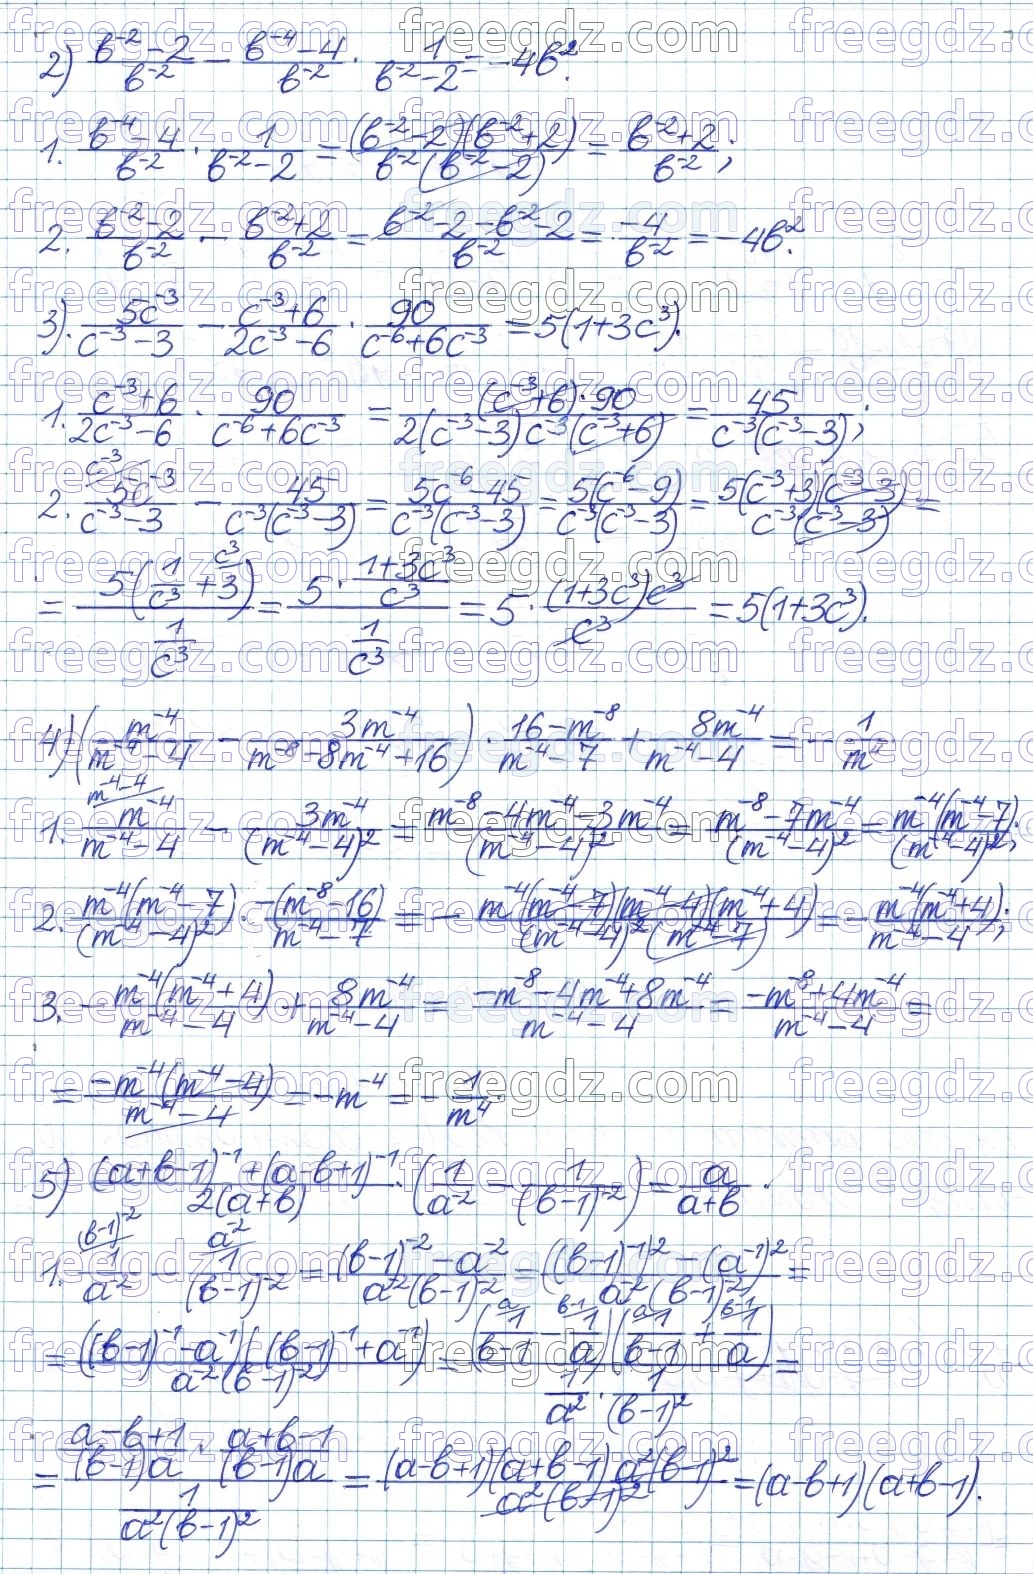 2) (в⁻² − 2)/в⁻² − (в⁻⁴ − 4)/в⁻² · 1/(в⁻² − 2) = −4в².
1. (в⁻⁴ − 4)/в⁻² · 1/(в⁻² − 2) = (в⁻² − 2)(в⁻² + 2)/(в⁻²(в⁻² − 2)) = (в⁻² + 2)/в⁻²;
2. (в⁻² − 2)/в⁻² − (в⁻² + 2)/в⁻² = (в⁻² − 2 − в⁻² − 2)/в⁻² = −4/в⁻² = −4в².
3). 5c⁻³/(c⁻³ − 3) − (c⁻³ + 6)/(2c⁻³ − 6) · 90/(c⁻⁶ + 6c⁻³) = 5(1 + 3c³).
1. (c⁻³ + 6)/(2c⁻³ − 6) · 90/(c⁻⁶ + 6c⁻³) = (c⁻³ + 6) · 90/(2(c⁻³ − 3)c⁻³(c⁻³ + 6)) = 45/(c⁻³(c⁻³ − 3));
2. c⁻³/ 5c⁻³/(c⁻³ − 3) − 45/(c⁻³(c⁻³ − 3)) = (5c⁻⁶ − 45)/(c⁻³(c⁻³ − 3)) = 5(c⁻⁶ − 9)/(c⁻³(c⁻³ − 3)) = 5(c⁻³ + 3)(c⁻³ − 3)/(c⁻³(c⁻³ − 3)) =
= 5(1/c³ + c³/ 3)/(1/c³) = (5 · (1 + 3c³)/c³)/(1/c³) = 5 · (1 + 3c³)c³/c³ = 5(1 + 3c³).
4) (m⁻⁴/(m⁻⁴ − 4) − 3m⁻⁴/(m⁻⁸ − 8m⁻⁴ + 16)) · (16 − m⁻⁸)/(m⁻⁴ − 7) + 8m⁻⁴/(m⁻⁴ − 4) = −1/m⁴
1. m⁻⁴ − 4/ m⁻⁴/(m⁻⁴ − 4) − 3m⁻⁴/(m⁻⁴ − 4)² = (m⁻⁸ − 4m⁻⁴ − 3m⁻⁴)/(m⁻⁴ − 4)² = (m⁻⁸ − 7m⁻⁴)/(m⁻⁴ − 4)² = m⁻⁴(m⁻⁴ − 7)/(m⁻⁴ − 4)²;
2. m⁻⁴(m⁻⁴ − 7)/(m⁻⁴ − 4)² · −(m⁻⁸ − 16)/(m⁻⁴ − 7) = − m⁻⁴(m⁻⁴ − 7)(m⁻⁴ − 4)(m⁻⁴ + 4)/((m⁻⁴ − 4)²(m⁻⁴ − 7)) = − m⁻⁴(m⁻⁴ + 4)/(m⁻⁴ − 4);
3. − m⁻⁴(m⁻⁴ + 4)/(m⁻⁴ − 4) + 8m⁻⁴/(m⁻⁴ − 4) = (−m⁻⁸ − 4m⁻⁴ + 8m⁻⁴)/(m⁻⁴ − 4) = (−m⁻⁸ + 4m⁻⁴)/(m⁻⁴ − 4) =
= −m⁻⁴(m⁻⁴ − 4)/(m⁻⁴ − 4) = −m⁻⁴ = −1/m⁴.
5) ((a + в − 1)⁻¹ + (a − в + 1)⁻¹)/(2(a + в)) · (1/a⁻² − 1/(в − 1)⁻²) = a/(a + в).
1. (в − 1)⁻²/ 1/a⁻² − a⁻²/ 1/(в − 1)⁻² = ((в − 1)⁻² − a⁻²)/(a⁻²(в − 1)⁻²) = (((в − 1)⁻¹)² − (a⁻¹)²)/(a⁻²(в − 1)⁻²) =
= ((в − 1)⁻¹ − a⁻¹)((в − 1)⁻¹ + a⁻¹)/(a⁻²(в − 1)⁻²) = (a/ 1/(в − 1) − в−1/ 1/a)(a/ 1/(в − 1) + в−1/ 1/a)/(1/a² · 1/(в − 1)²) =
= ((a − в + 1)/((в − 1)a) · (a + в − 1)/((в − 1)a))/(1/(a²(в − 1)²)) = (a − в + 1)(a + в − 1)a²(в − 1)²/(a²(в − 1)²) = (a − в + 1)(a + в − 1).
freegdz.com